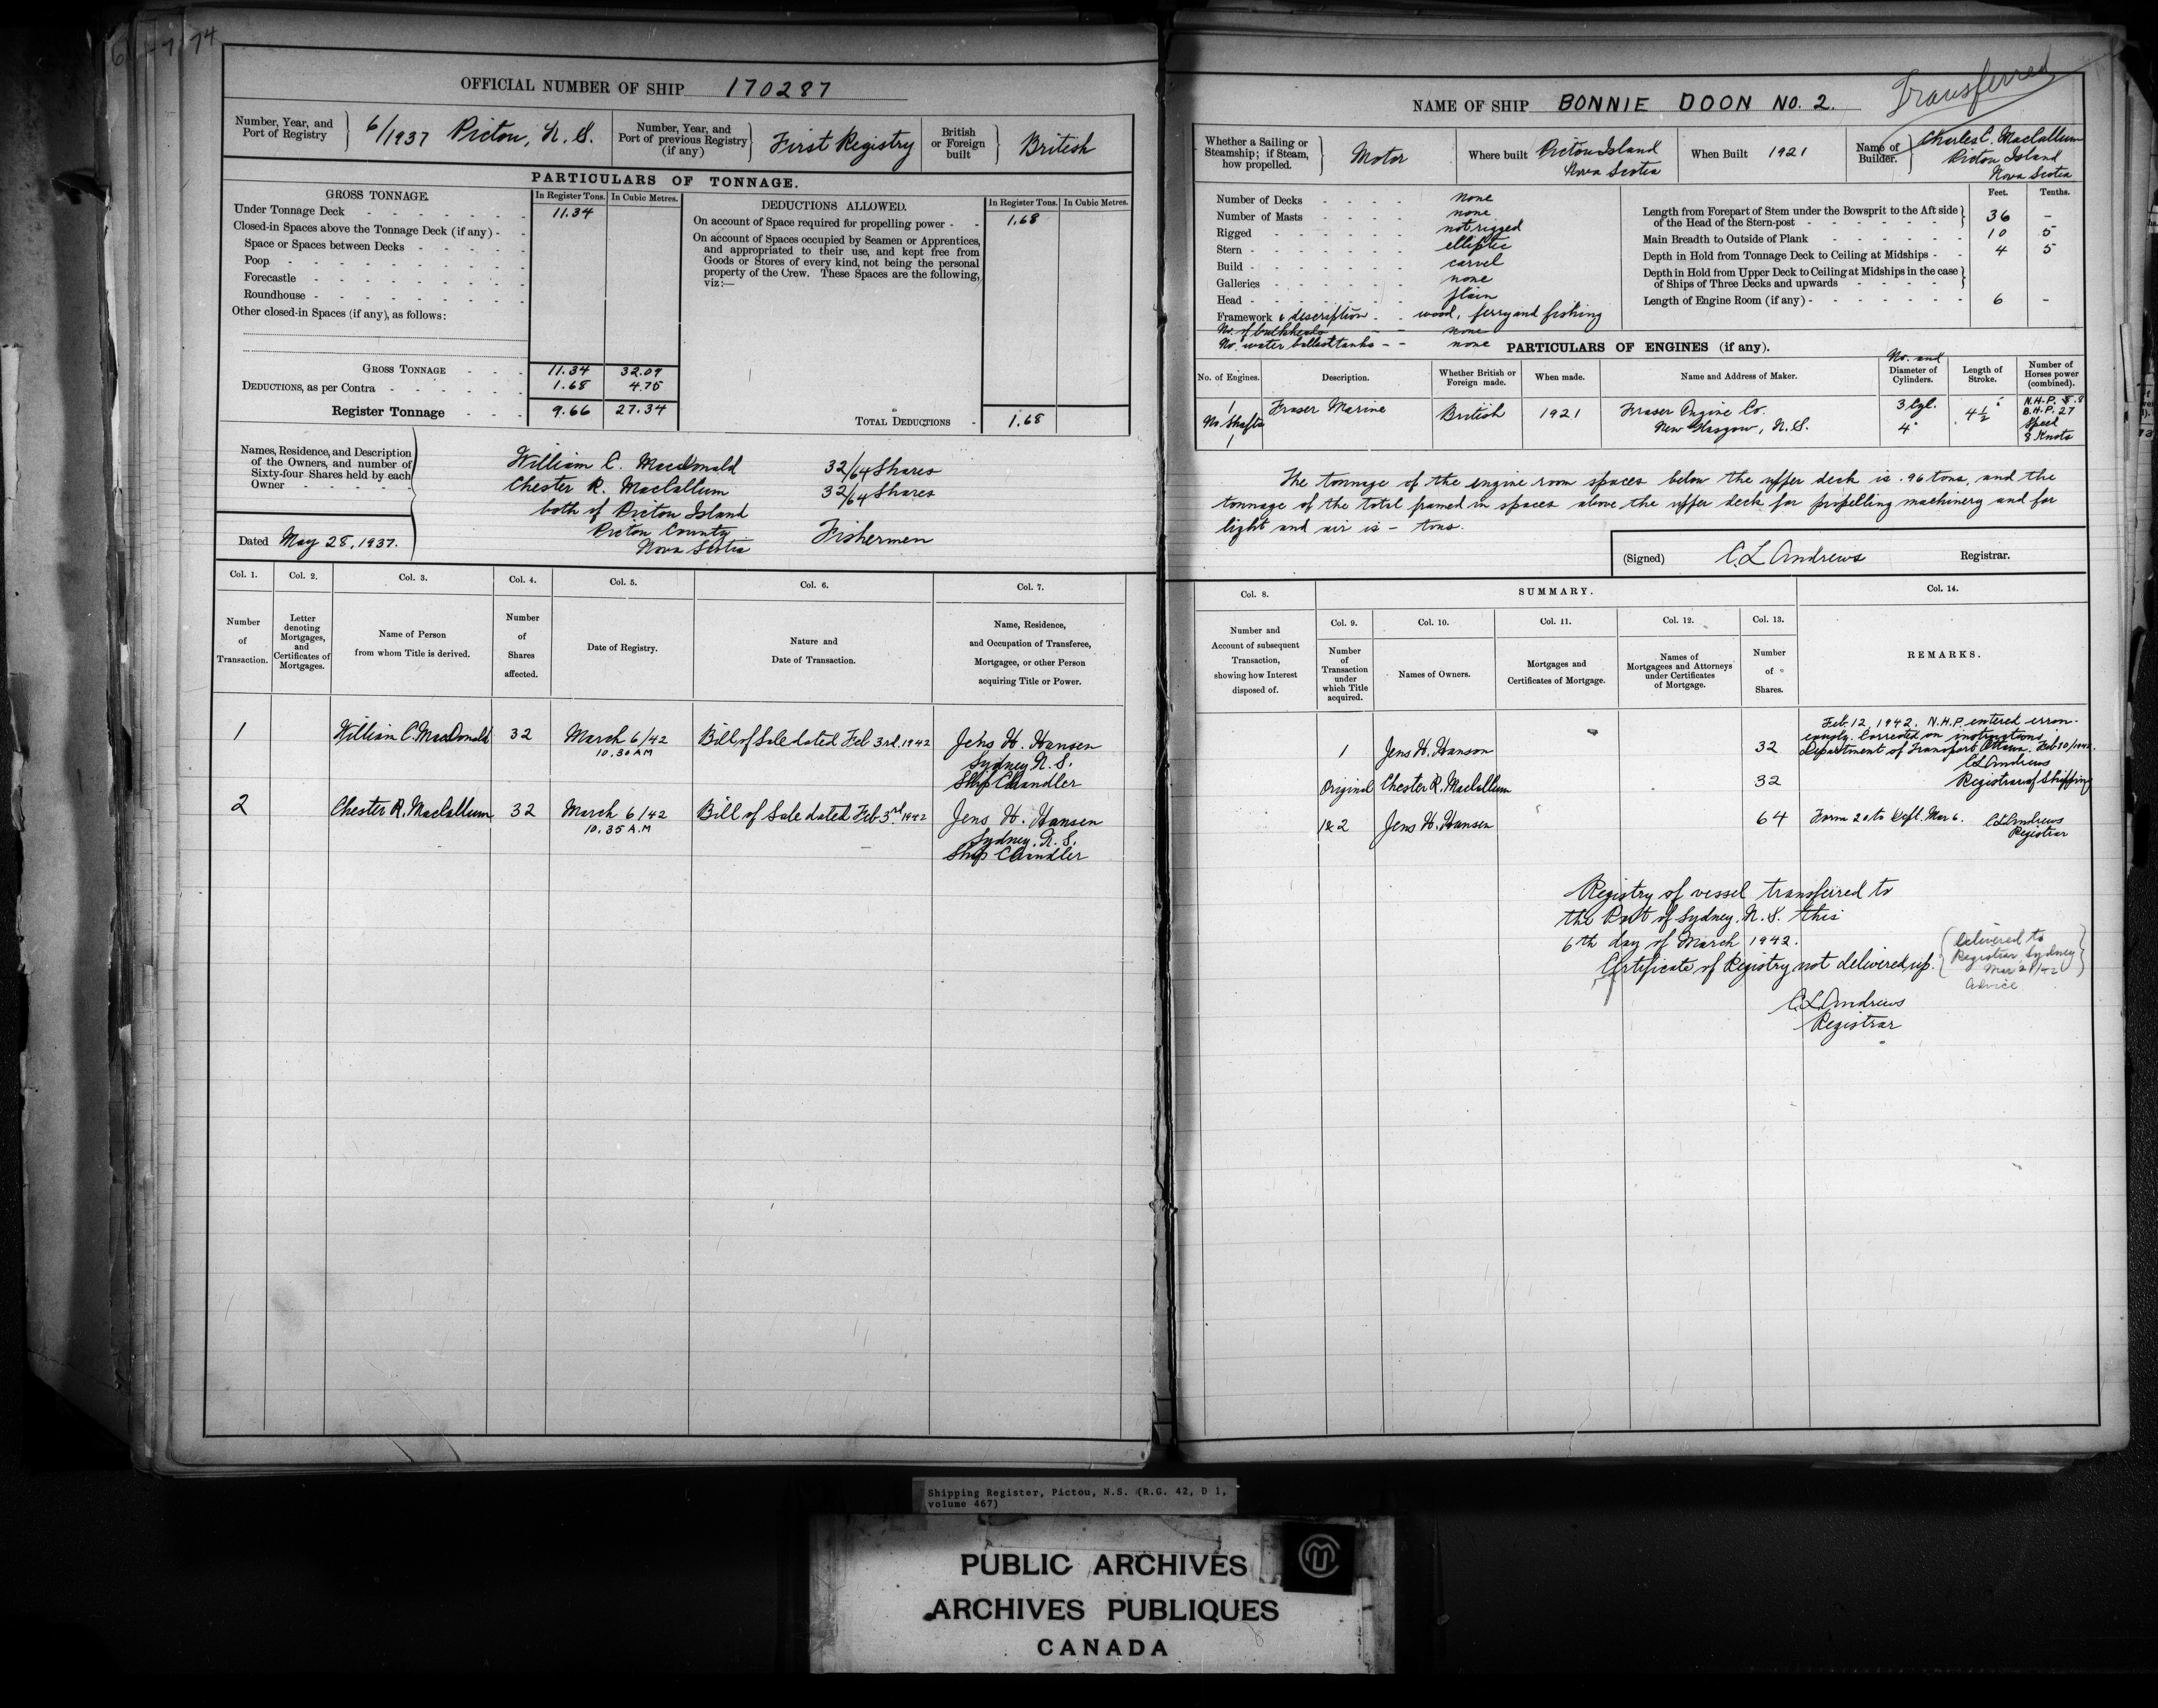 74
OFFICIAL NUMBER OF SHIP 170287
Number, Year, and Port of Registry
6/1937 Pictou, N. S.
Number, Year, and Port of previous Registry (if any)
First Registry
British or Foreign built
British
PARTICULARS OF TONNAGE.
GROSS TONNAGE.
In Register Tons. In Cubic Metres.
Under Tonnage Deck 11.34
Closed-in Spaces above the Tonnage Deck (if any)
Space or Spaces between Decks
Poop
Forecastle
Roundhouse
Other closed-in Spaces (if any), as follows:
GROSS TONNAGE 11.34 32.09
DEDUCTIONS, as per Contra 1.68 4.75
Register Tonnage 9.66 27.34
DEDUCTIONS ALLOWED.
In Register Tons. In Cubic Metres.
On account of Space required for propelling power 1.68
On account of Spaces occupied by Seamen or Apprentices,
and appropriated to their use, and kept free from
Goods or Stores of every kind, not being the personal
property of the Crew. These Spaces are the following,
viz:—
TOTAL DEDUCTIONS 1.68
Names, Residence, and Description
of the Owners, and number of
Sixty-four Shares held by each
Owner
William C. MacDonald 32/64 Shares
Chester R. MacCallum 32/64 Shares
both of Pictou Island
Pictou County
Nova Scotia Fishermen
Dated May 28, 1937.
Col. 1. Col. 2. Col. 3. Col. 4. Col. 5. Col. 6. Col. 7.
Number of Transaction.
Letter denoting Mortgages, and Certificates of Mortgages.
Name of Person from whom Title is derived.
Number of Shares affected.
Date of Registry.
Nature and Date of Transaction.
Name, Residence, and Occupation of Transferee, Mortgagee, or other Person acquiring Title or Power.
1 William C. MacDonald 32 March 6/42 Bill of Sale dated Feb 3rd, 1942 Jens H. Hansen
10.30 AM Sydney N. S.
Ship Chandler
2 Chester R. MacCallum 32 March 6/42 Bill of Sale dated Feb 3rd 1942 Jens H. Hansen
10.35 A.M Sydney. N. S.
Ship Chandler
NAME OF SHIP BONNIE DOON NO. 2.
Transferred
Whether a Sailing or Steamship; if Steam, how propelled.
Motor
Where built Pictou Island
Nova Scotia
When Built 1921
Name of Builder.
Charles C. MacCallum
Pictou Island
Nova Scotia
Number of Decks none
Number of Masts none
Rigged not rigged
Stern elliptic
Build carvel
Galleries none
Head plain
Framework & description wood, ferry and fishing
No. of bulkheads none
No. water ballast tanks none
Feet. Tenths.
Length from Forepart of Stem under the Bowsprit to the Aft side
of the Head of the Stern-post 36 –
Main Breadth to Outside of Plank 10 5
Depth in Hold from Tonnage Deck to Ceiling at Midships 4 5
Depth in Hold from Upper Deck to Ceiling at Midships in the case
of Ships of Three Decks and upwards
Length of Engine Room (if any) 6 –
PARTICULARS OF ENGINES (if any).
No. of Engines. Description. Whether British or Foreign made. When made. Name and Address of Maker. No. and Diameter of Cylinders. Length of Stroke. Number of Horses power (combined).
1 Fraser Marine British 1921 Fraser Engine Co. 3 Cyl. 4 1/2" N.H.P. 8.8
No. Shafts New Glasgow, N. S. 4" B.H.P. 27
1 Speed
8 Knots
The tonnage of the engine room spaces below the upper deck is .96 tons, and the
tonnage of the total framed in spaces above the upper deck for propelling machinery and for
light and air is – tons.
(Signed) C. L. Andrews Registrar.
Col. 8. SUMMARY. Col. 14.
Col. 9. Col. 10. Col. 11. Col. 12. Col. 13.
Number and Account of subsequent Transaction, showing how Interest disposed of.
Number of Transaction under which Title acquired.
Names of Owners.
Mortgages and Certificates of Mortgage.
Names of Mortgagees and Attorneys under Certificates of Mortgage.
Number of Shares.
REMARKS.
Feb. 12, 1942. N.H.P. entered erron-
eously. Corrected on instructions
Department of Transport Ottawa. Feb 10/1942.
C L Andrews
Registrar of Shipping
1 Jens H. Hanson 32
Original Chester R. MacCallum 32
1&2 Jens H. Hansen 64 Form 20 to Dept. Mar 6. C L Andrews
Registrar
Registry of vessel transferred to
the Port of Sydney, N. S. this
6th day of March 1942.
Certificate of Registry not delivered up.
Delivered to
Registrar Sydney
Mar 21/42
advice
C. L. Andrews
Registrar
Shipping Register, Pictou, N.S. (R.G. 42, D 1,
volume 467)
PUBLIC ARCHIVES
ARCHIVES PUBLIQUES
CANADA